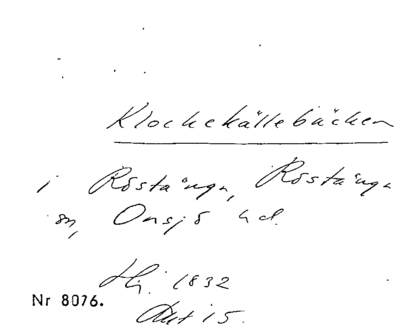 Klockekällebäcken
i Röstånga, Röstånga
sn, Onsjö hd.
Hj. 1832
Nr 8076.
Akt 15.